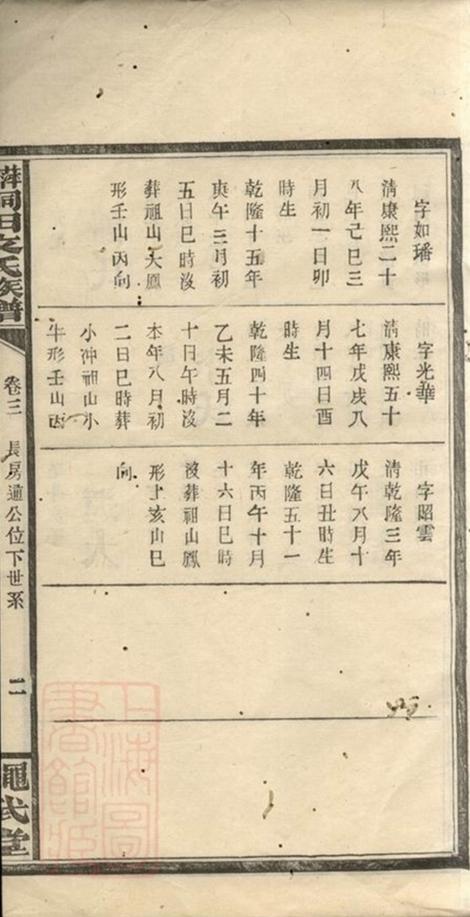 字如璠
清康熙二十
八年己巳三
月初一日卯
時生
乾隆十五年
庚午三月初
五日巳時沒
葬祖山大鳳
形壬山丙向
字光華
清康熙五十
七年戊戌八
月十四日酉
時生
乾隆四十年
乙未五月二
十日午時沒
本年八月初
二日巳時葬
小沖祖山小
牛形壬山丙
字昭雲
清乾隆三年
戊午八月十
六日丑時生
乾隆五十一
年丙午十月
十六日巳時
沒葬祖山鳳
形 亥山巳
向
萍 田文氏族譜
卷三
長房 公位下世系
二
武堂
上海圖書館藏